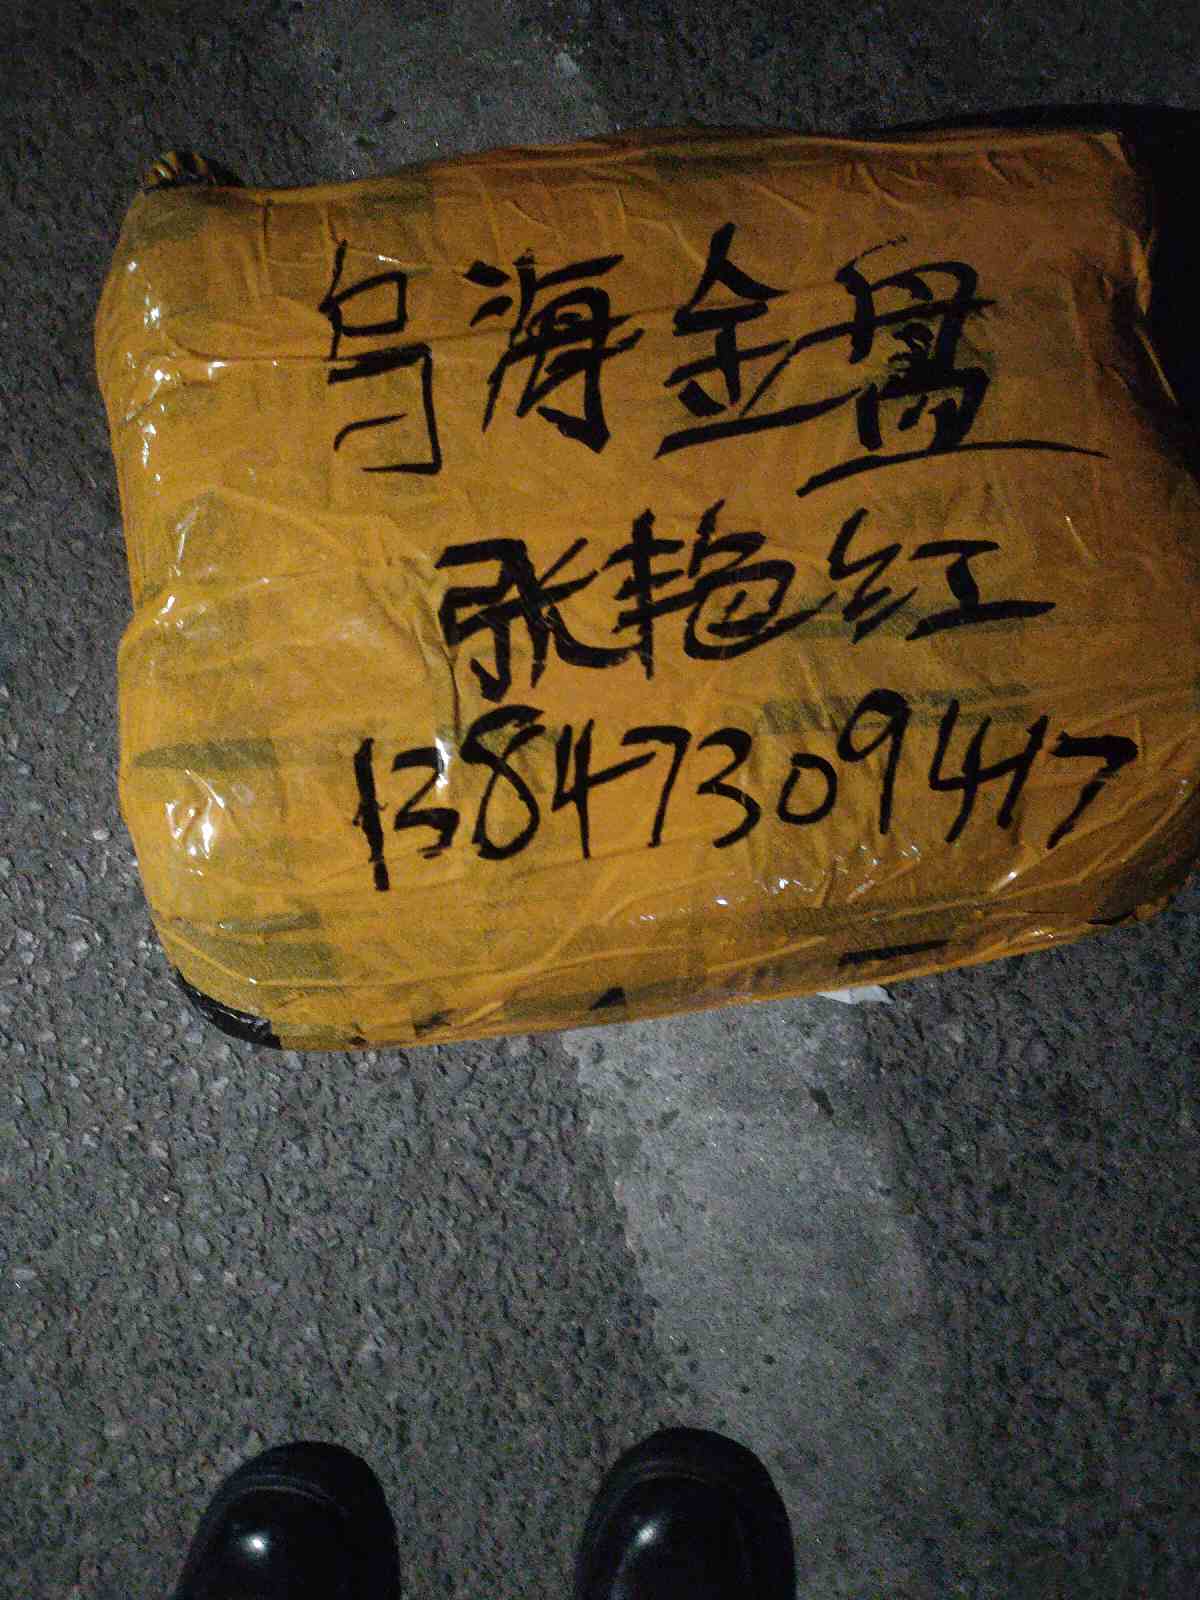 乌海金盘
张艳红
13847309417